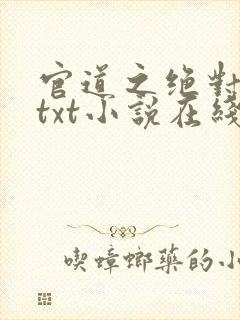 官道之绝對
txt小說在綫
喫蟑螂藥的小